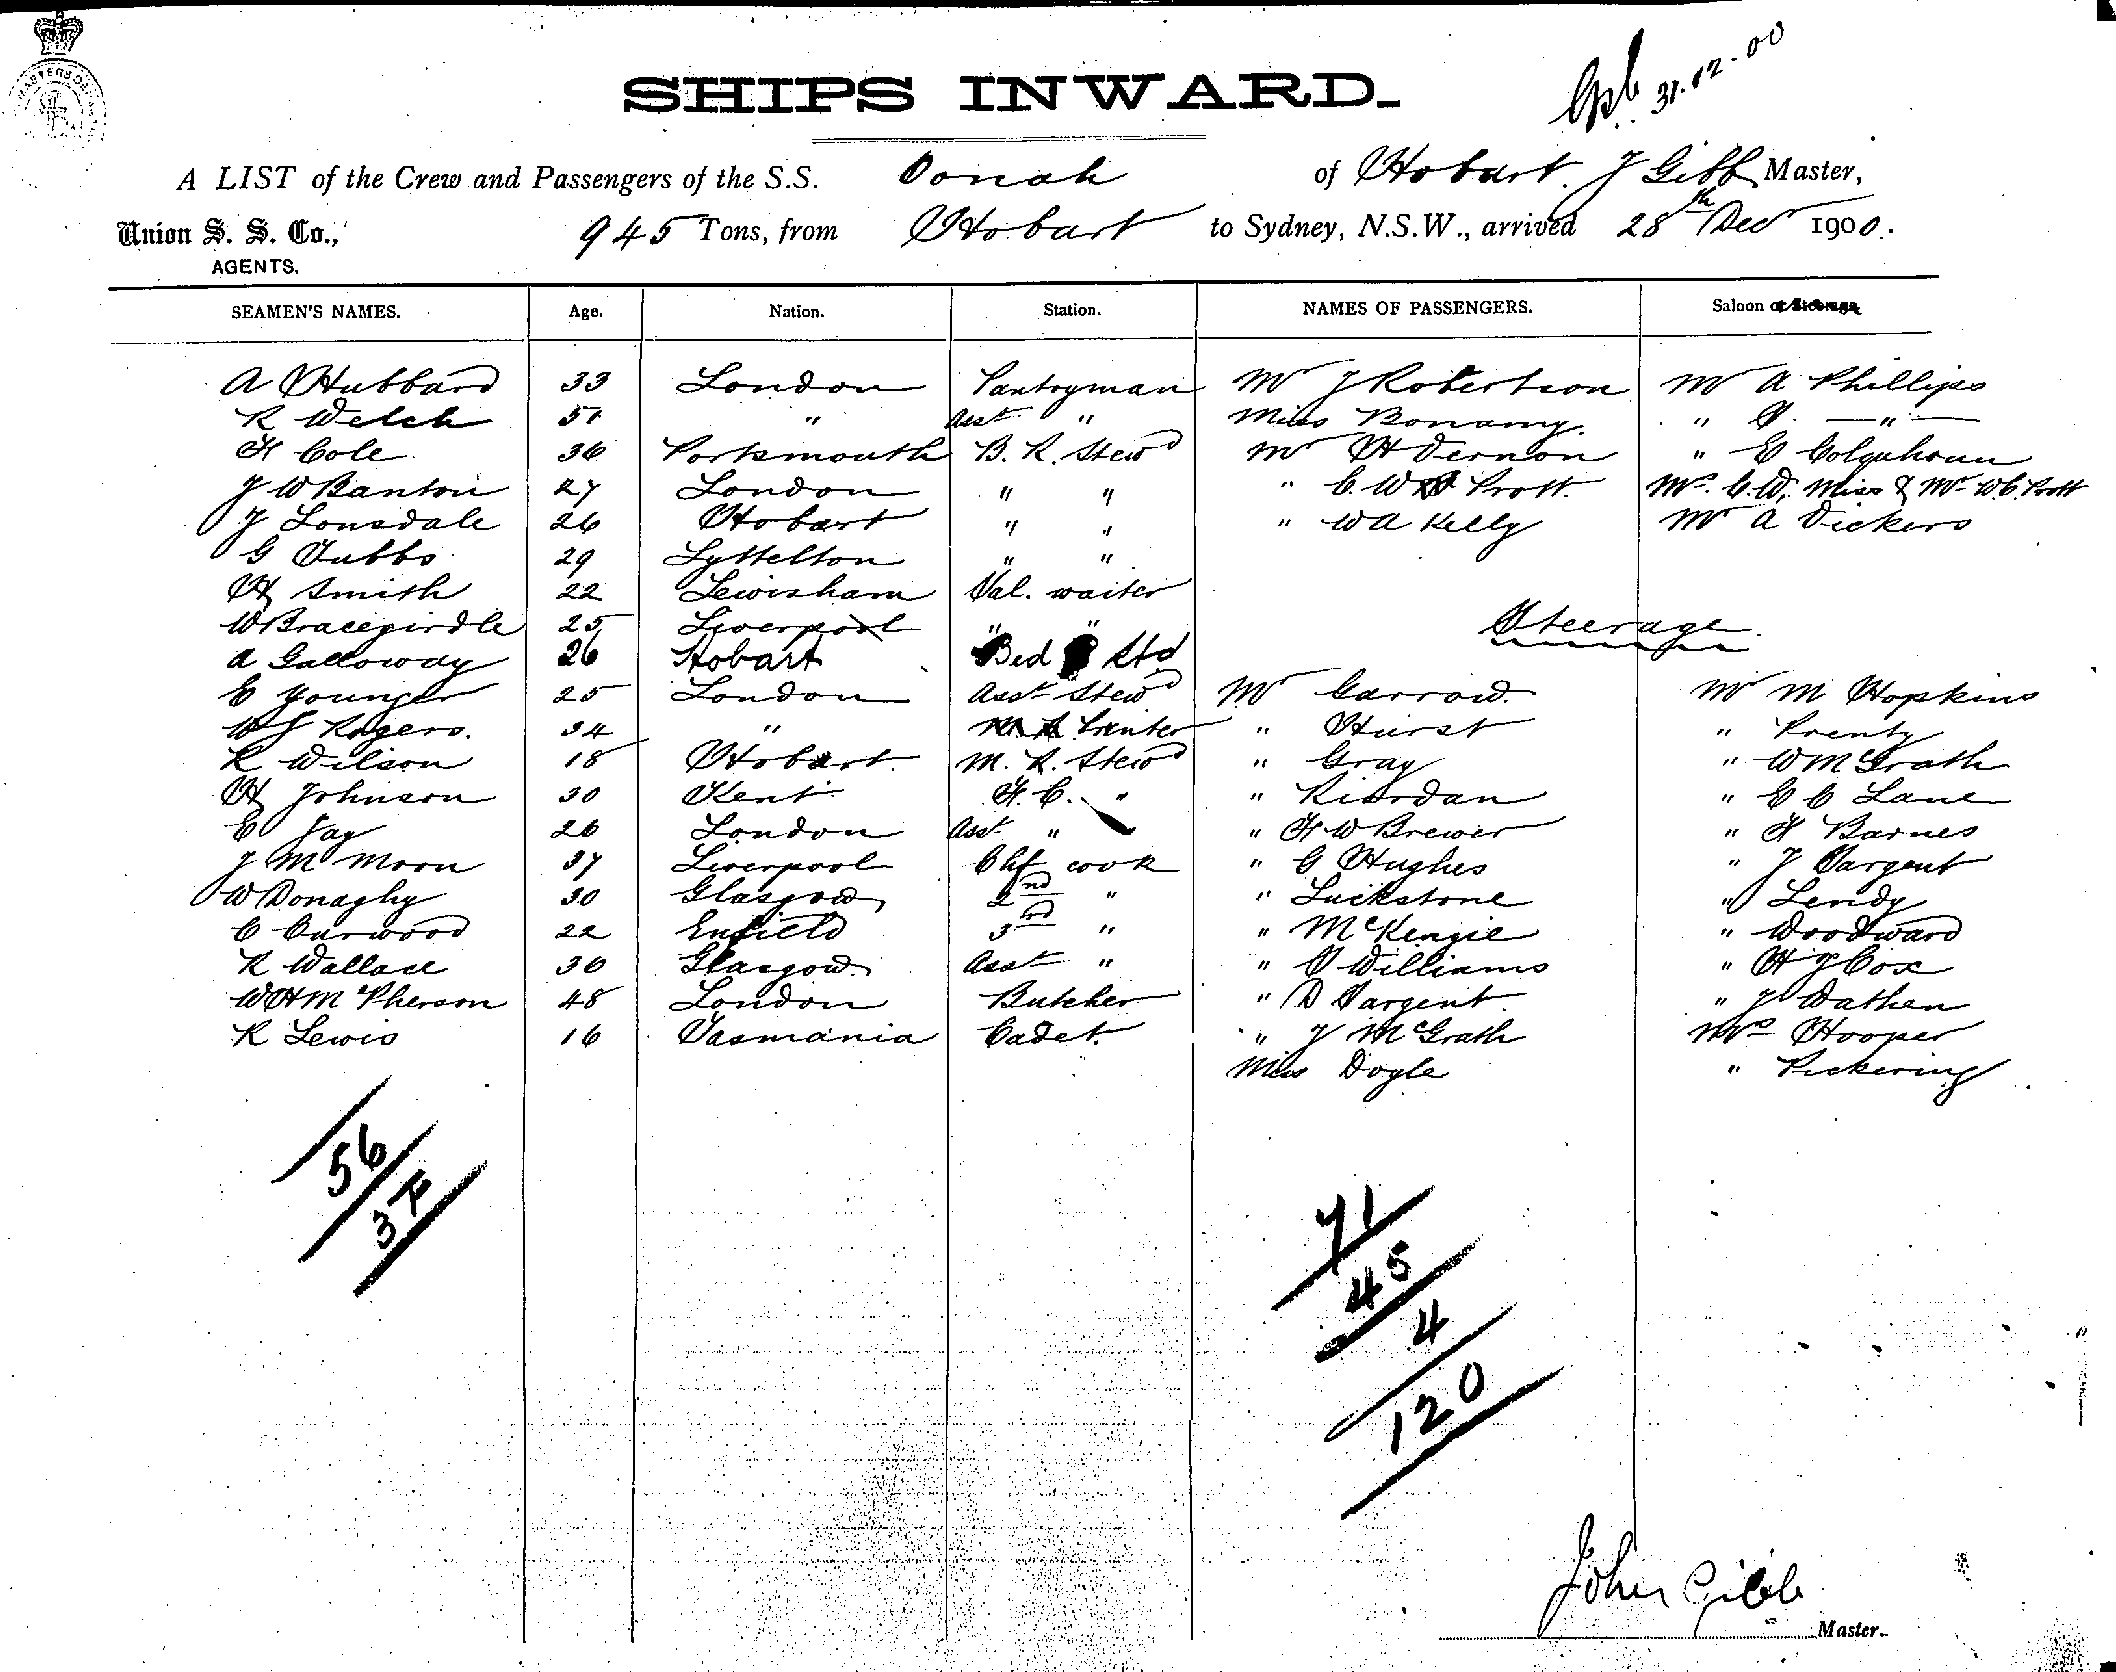 SHIPS INWARD.
31.12.00
A LIST of the Crew and Passengers of the S.S. Oonah of Hobart. J Gibb Master,
Union S. S. Co., 945 Tons, from Hobart to Sydney, N.S.W., arrived 28th Dec 1900.
AGENTS.
SEAMEN'S NAMES. Age. Nation. Station. NAMES OF PASSENGERS. Saloon or Steerage
A Hubbard 33 London Pantryman Mr J Robertson Mr A Phillips
R Welch 51 " Asst " Miss Bonamy. " — " —
H Cole 36 Portsmouth B. R. Stewd Mr H Vernon " E Colquhoun
J W Banton 27 London " " " C. W Prott. Mrs. C. W, Miss & Mr W. C. Prott
J Lonsdale 26 Hobart " " " W A Kelly Mr A Vickers
G Tubbs 29 Lyttelton " "
H Smith 22 Lewisham Sal. waiter
W Bracegirdle 25 Liverpool " " Steerage.
A Galloway 26 Hobart Bed Std
E Younger 25 London Asst Stewd Mr Garrow. Mr M Hopkins
W J Rogers. 34 " Printer " Hurst " Prenty
R Wilson 18 Hobart. M. R. Stewd " Gray " W McGrath
H Johnson 30 Kent F. C. " " Riordan " E C Lane
E Jay 26 London Asst " " H W Brewer " H Barnes
J M Moon 37 Liverpool Chf cook " G Hughes " J Sargent
W Donaghy 30 Glasgow 2nd " " Luckstone " Lendy
C Curwood 22 Enfield 3rd " " McKenzie " Woodward
R Wallace 36 Glasgow. Asst " " Williams " H J Cox
W H McPherson 48 London Butcher " D Sargent " J Wathen
R Lewis 16 Tasmania Cadet. " J McGrath Mrs Hooper
Miss Doyle " Pickering
56
37
71
45
4
120
John Gibb
Master.